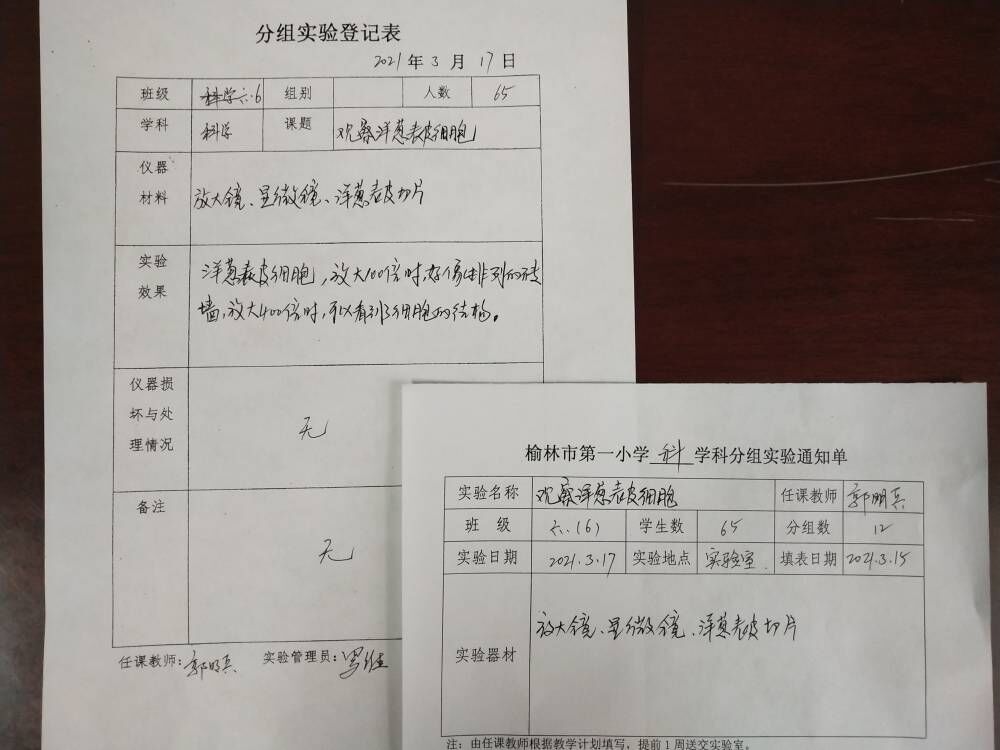 分组实验登记表
2021年3月17日
班级 科学六.6 组别 人数 65
学科 科学 课题 观察洋葱表皮细胞
仪器材料 放大镜、显微镜、洋葱表皮切片
实验效果 洋葱表皮细胞,放大100倍时,好像排列的砖
墙,放大400倍时,可以看到细胞的结构。
仪器损坏与处理情况 无
备注 无
任课教师:郭明兵 实验管理员:
榆林市第一小学 科 学科分组实验通知单
实验名称 观察洋葱表皮细胞 任课教师 郭明兵
班级 六.(6) 学生数 65 分组数 12
实验日期 2021.3.17 实验地点 实验室 填表日期 2021.3.15
实验器材 放大镜、显微镜、洋葱表皮切片
注:由任课教师根据教学计划填写,提前1周送交实验室。